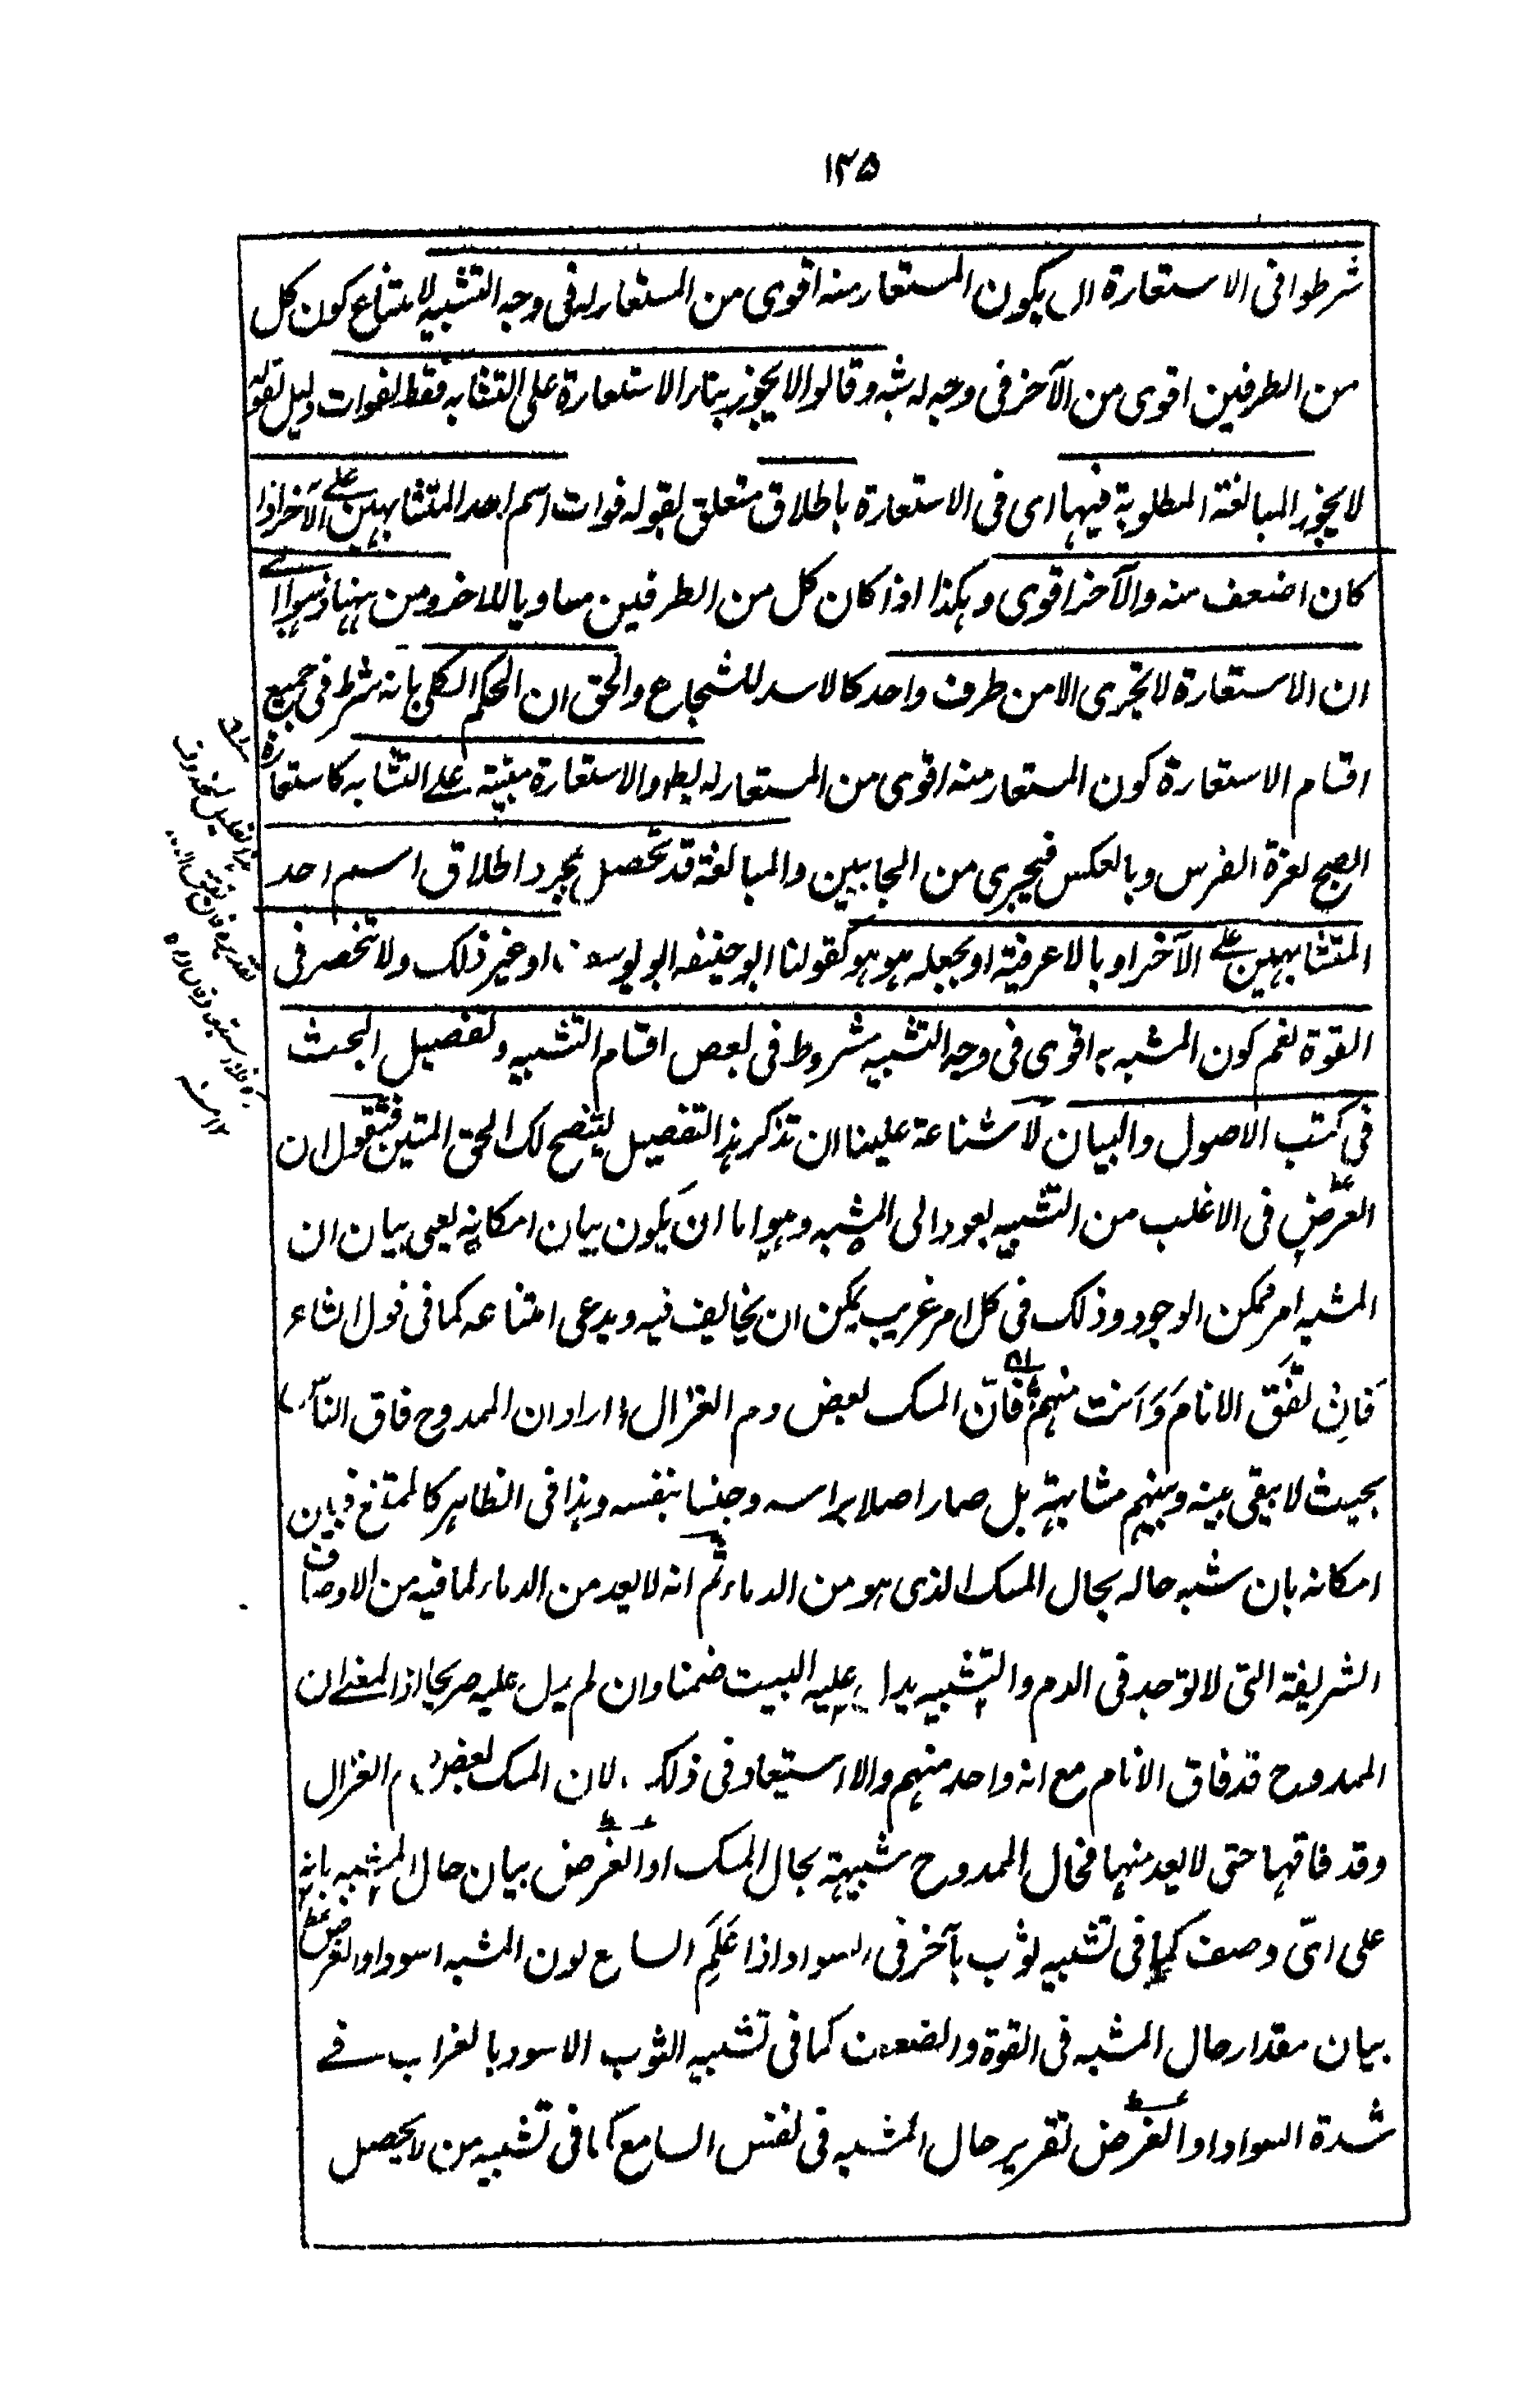 ١٣٥
شرطوا فى الاستعارة ان يكون المستعار منه اقوى من المستعار له فى وجه التشبيه لامتناع كون كل
من الطرفين اقوى من الآخر فى وجه له شبه وقالوا لا يجوز بناء الاستعارة على التشابه فقط لفوات دليل لقوله
لا يجوز المبالغة المطلوبة فيها اى فى الاستعارة باطلاق متعلق بقوله فوات اسم احد المتشابهين على الآخر اذا
كان اضعف منه والآخر اقوى وهكذا اذا كان كل من الطرفين مساويا للاخر ومن ههنا ذهبوا الى
ان الاستعارة لا تجرى الا من طرف واحد كالاسد للشجاع والحق ان الحكم الكلى بانه شرط فى جميع
اقسام الاستعارة كون المستعار منه اقوى من المستعار له بط والاستعارة مبنية على التشابه كاستعارة
الصبح لغرة الفرس وبالعكس فيجرى من الجانبين والمبالغة قد تحصل بمجرد اطلاق اسم احد
المتشابهين على الآخر او بالاعرفية او بجعله هو هو كقولنا ابو حنيفه ابو يوسف او غير ذلك ولا تنحصر فى
القوة نعم كون المشبه به اقوى فى وجه التشبيه مشروط فى بعض اقسام التشبيه وتفصيل البحث
فى كتب الاصول والبيان لا شناعة علينا ان نذكر هذا التفصيل ليتضح لك الحق المتين فنقول ان
الغرض فى الاغلب من التشبيه يعود الى المشبه وهو اما ان يكون بيان امكانه يعنى بيان ان
المشبه امر ممكن الوجود وذلك فى كل امر غريب يمكن ان يخالف فيه ويدعى امتناعه كما فى قول الشاعر
فَاِن تَفُقِ الانامَ وَاَنت منهم فانّ المسك بعض دم الغزال اراد ان الممدوح فاق الناس
بحيث لا يبقى بينه وبينهم مشابهة بل صار اصلا براسه وجنسا بنفسه وهذا فى الظاهر كالممتنع فبين
امكانه بان شبه حاله بحال المسك الذى هو من الدماء ثم انه لا يعد من الدماء لما فيه من الاوصاف
الشريفة التى لا توجد فى الدم والتشبيه يدل عليه البيت ضمنا وان لم يدل عليه صريحا اذ المعنى ان
الممدوح قد فاق الانام مع انه واحد منهم والا استبعاد فى ذلك لان المسك بعض دم الغزال
وقد فاقها حتى لا يعد منها فحال الممدوح شبيهة بحال المسك او الغرض بيان حال المشبه بانه
على اىّ وصف كما فى تشبيه ثوب بآخر فى السواد اذا عَلِمَ السامع لون المشبه اسود او الغرض
بيان مقدار حال المشبه فى القوة والضعف كما فى تشبيه الثوب الاسود بالغراب فى
شدة السواد او الغرض تقرير حال المشبه فى نفس السامع كما فى تشبيه من لا يحصل